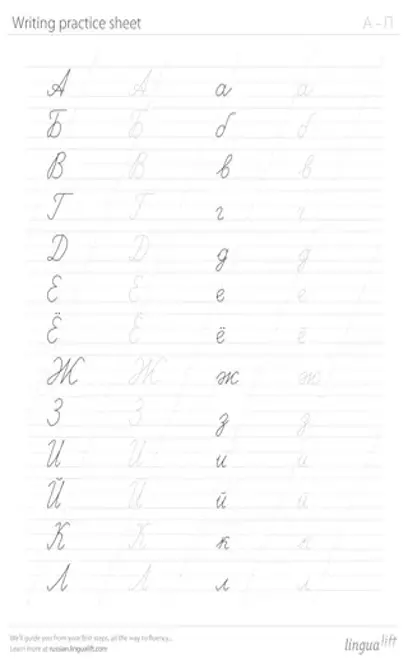 Writing practice sheet А – П
А А а а
Б Б б б
В В в в
Г Г г г
Д Д д д
Е Е е е
Ё Ё ё ё
Ж Ж ж ж
З З з з
И И и и
Й Й й й
К К к к
Л Л л л
We'll guide you from your first steps, all the way to fluency...
Learn more at russian.lingualift.com
lingualift